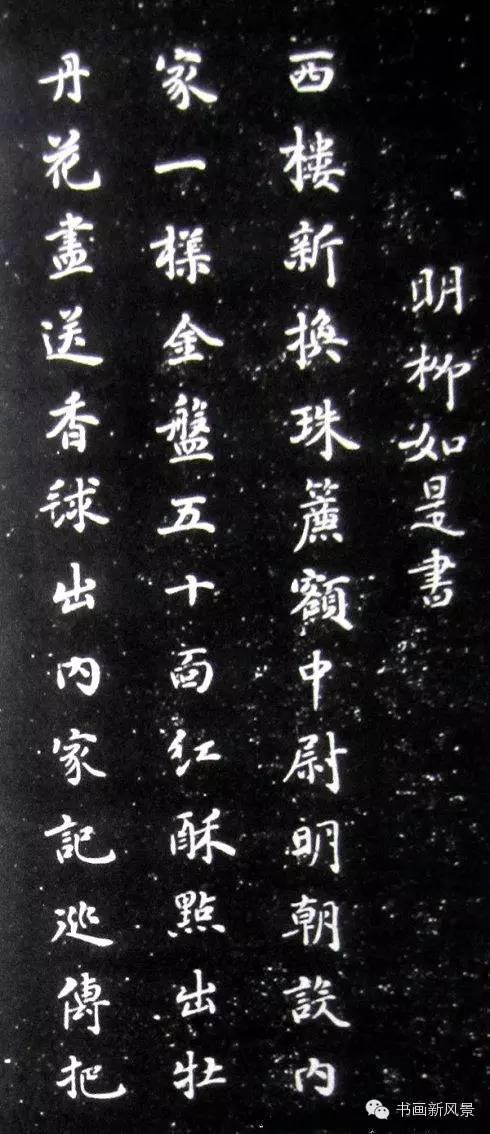 明柳如是書
西樓新換珠簾額中尉明朝設內
家一樣金盤五十面紅酥點出牡
丹花盡送香毬出內家記巡傳把
书画新风景